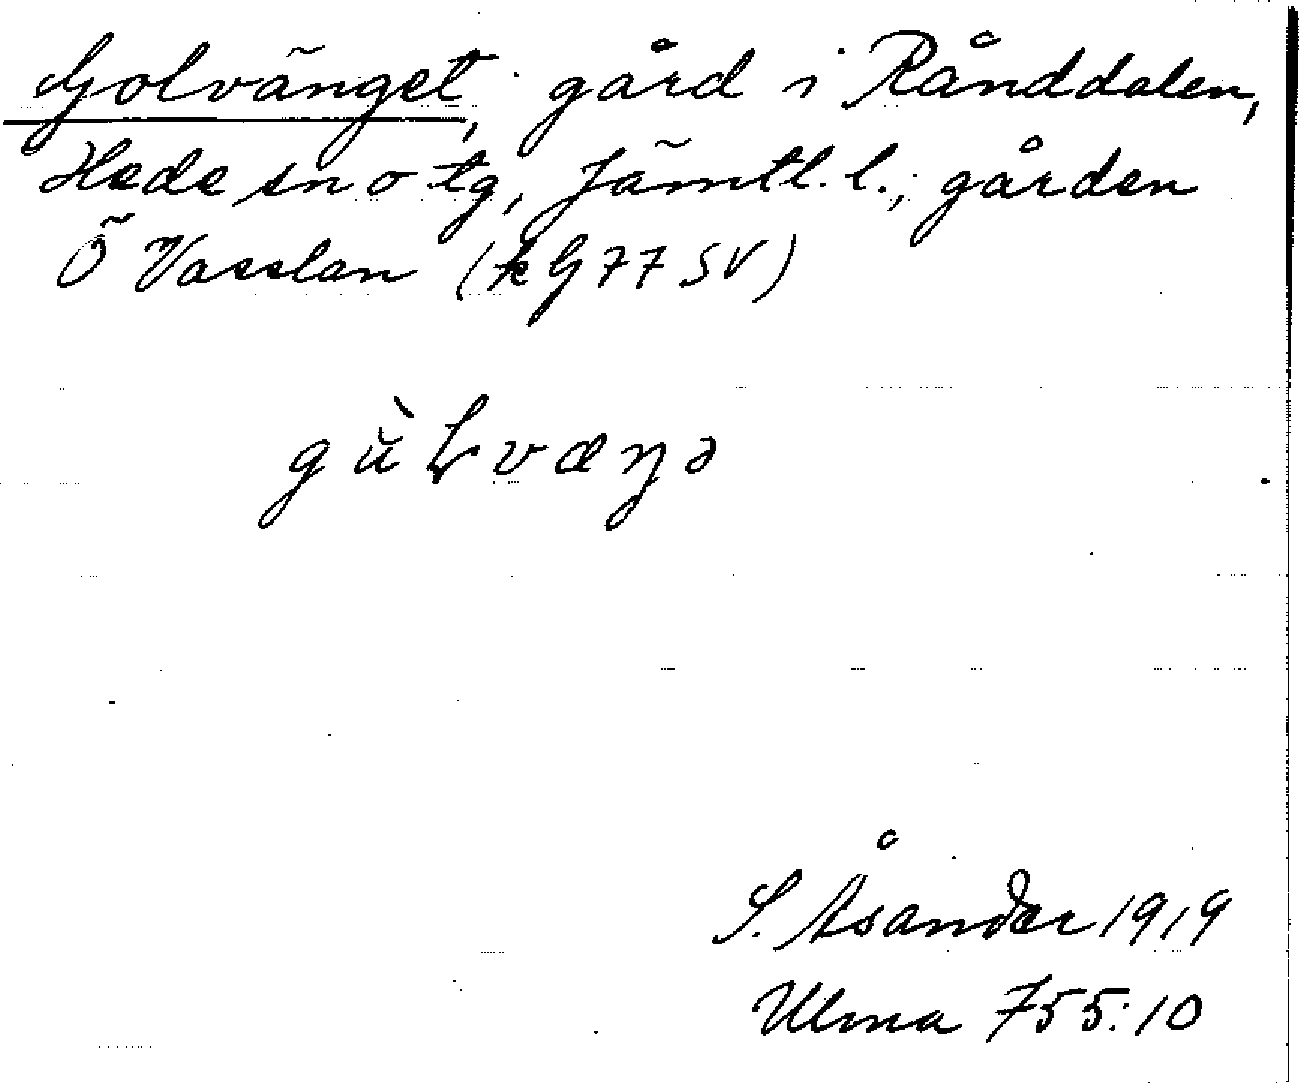 Golvänget, gård i Rånddalen,
Hede sn o tg, Jämtl. l., gården
Ö Vasslan (k G 77 SV)
gùɫvæŋə
S. Åsander 1919
Ulma 755:10